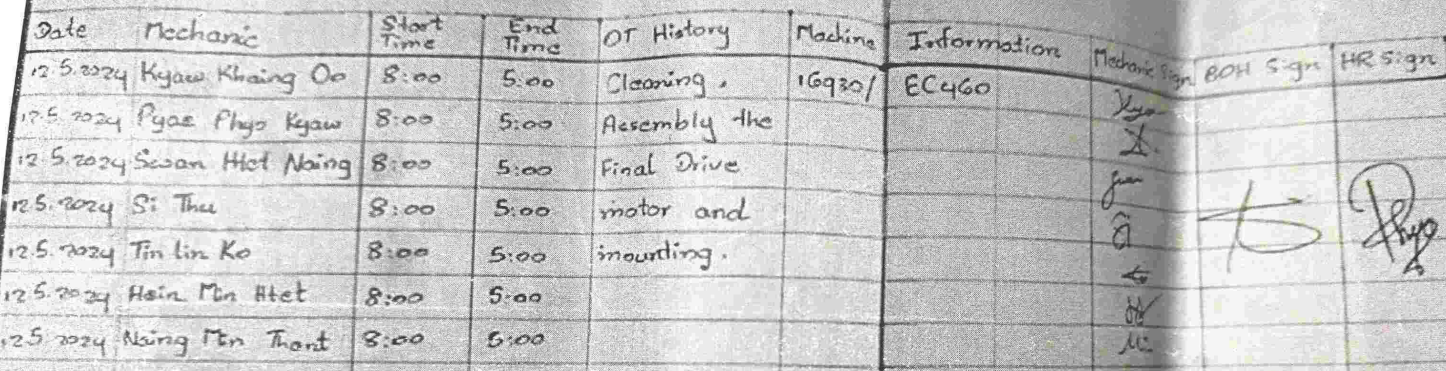 Date Mechanic Start Time End Time OT History Machine Information Mechanic Sign BOH Sign HR Sign
12.5.2024 Kyaw Khaing Oo 8:00 5:00 Cleaning, 16930/ EC460
12.5.2024 Pyae Phyo Kyaw 8:00 5:00 Assembly the
12.5.2024 Swan Htet Naing 8:00 5:00 Final Drive
12.5.2024 Si Thu 8:00 5:00 motor and
12.5.2024 Tin Lin Ko 8:00 5:00 mounting.
12.5.2024 Hein Min Htet 8:00 5:00
12.5.2024 Naing Min Thant 8:00 5:00